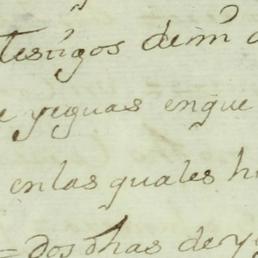 testigos demi
yeguas enque
enlas quales
= dos dhas de y